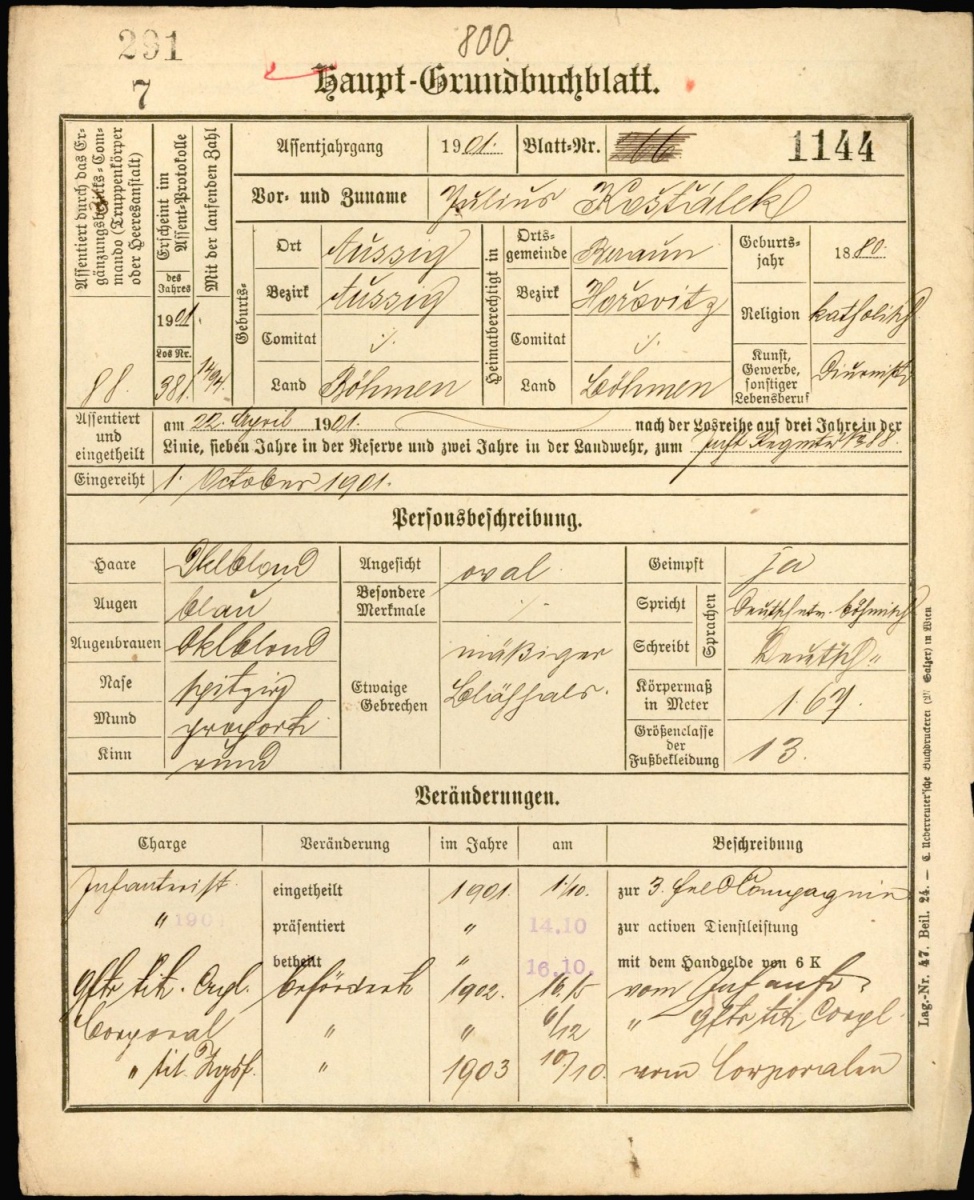 291
800
7
Haupt-Grundbuchblatt.
Assentiert durch das Ergänzungsbezirks-Commando (Truppenkörper oder Heeresanstalt)
88.
Erscheint im Assent-Protokolle
des Jahres
1901.
Los Nr.
381
Mit der laufenden Zahl
Assentjahrgang 1901. Blatt-Nr. 66 1144
Vor- und Zuname Julius Košťálek
Geburts-
Ort Aussig
Bezirk Aussig
Comitat ·/.
Land Böhmen
Heimatberechtigt in
Ortsgemeinde Beraun
Bezirk Hořovitz
Comitat ·/.
Land Böhmen
Geburtsjahr 1880.
Religion katholisch
Kunst, Gewerbe, sonstiger Lebensberuf Diurnist
Assentiert und eingetheilt
am 22. April 1901. nach der Losreihe auf drei Jahre in der
Linie, sieben Jahre in der Reserve und zwei Jahre in der Landwehr, zum Inft Regmte № 88.
Eingereiht 1. October 1901.
Personsbeschreibung.
Haare Dklblond
Augen blau
Augenbrauen Dklblond
Nase spitzig
Mund proport.
Kinn rund
Angesicht oval.
Besondere Merkmale ·/.
Etwaige Gebrechen mäßiger
Blähhals.
Geimpft ja
Sprachen
Spricht Deutsch etw. böhmisch
Schreibt Deutsch "
Körpermaß in Meter 1·67.
Größenclasse der Fußbekleidung 13.
Veränderungen.
Charge Veränderung im Jahre am Beschreibung
Infanterist eingetheilt 1901. 1/10. zur 3. Feldcompagnie
" 190 präsentiert " 14.10 zur activen Dienstleistung
betheilt " 16.10. mit dem Handgelde von 6 K
Gftr tit. Crpl. befördert 1902. 16/5 vom Infantr.
Corporal " " 6/12 " Gftr tit Corpl.
" tit. Zgsf. " 1903 10/10. vom Corporalen
Lag.-Nr. 47. Beil. 24. — C. Ueberreuter'sche Buchdruckerei (M. Salzer) in Wien